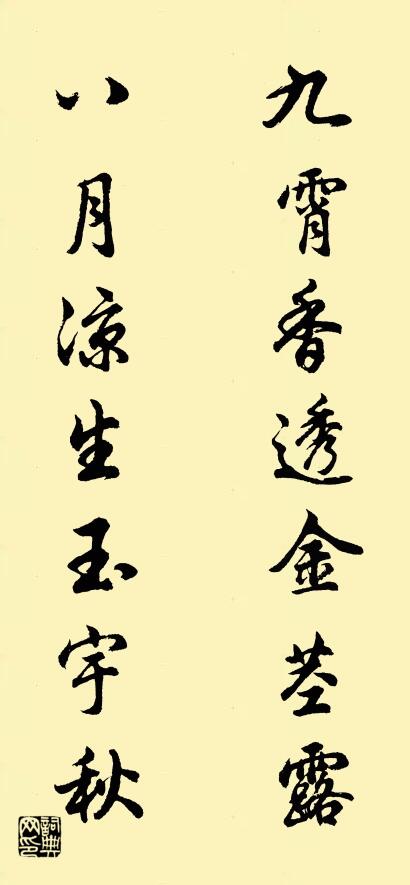 九霄香透金茎露
八月凉生玉宇秋
詞典网